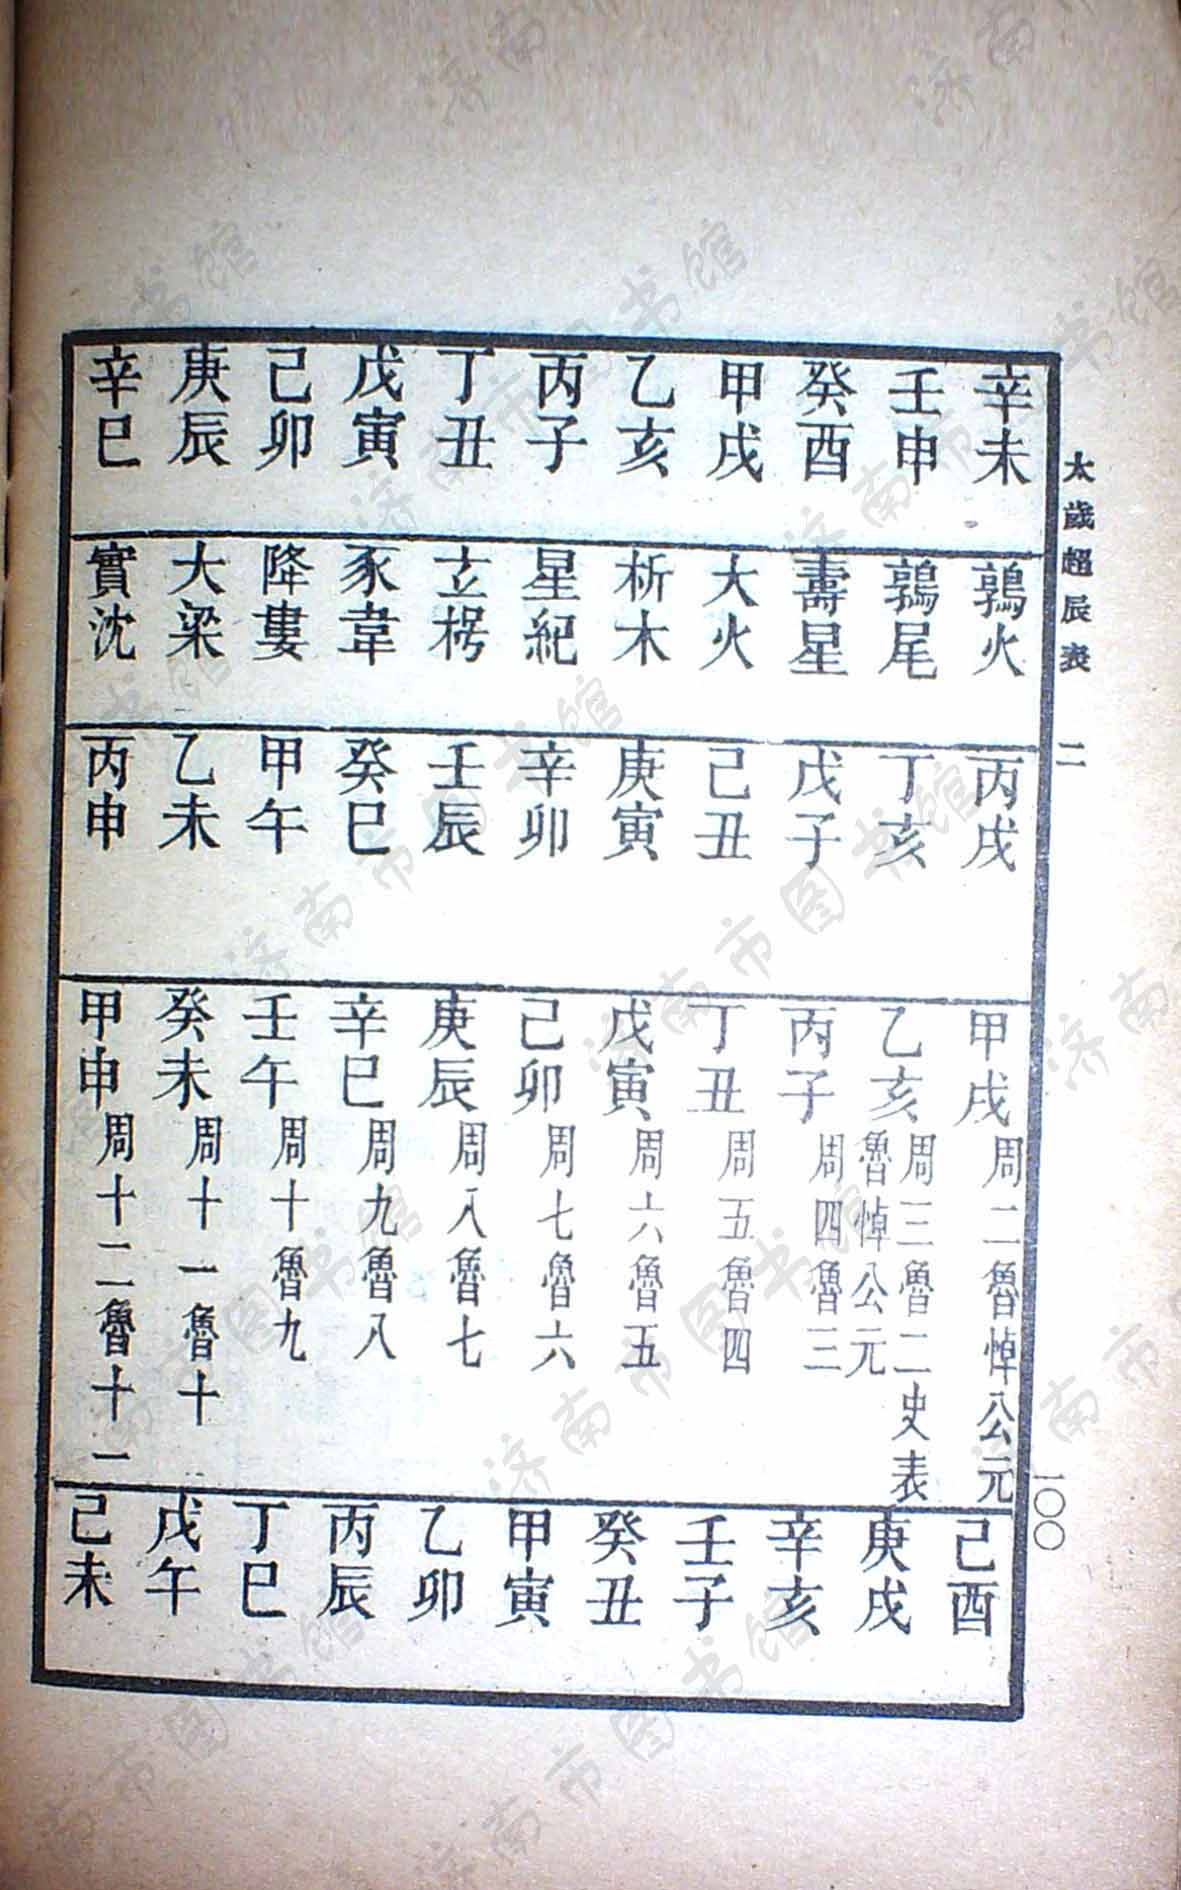 太歲超辰表 二 一〇〇
辛未 鶉火 丙戌 甲戌 周二魯悼公元 己酉
壬申 鶉尾 丁亥 乙亥 周三魯二史表魯悼公元 庚戌
癸酉 壽星 戊子 丙子 周四魯三 辛亥
甲戌 大火 己丑 丁丑 周五魯四 壬子
乙亥 析木 庚寅 戊寅 周六魯五 癸丑
丙子 星紀 辛卯 己卯 周七魯六 甲寅
丁丑 玄枵 壬辰 庚辰 周八魯七 乙卯
戊寅 豕韋 癸巳 辛巳 周九魯八 丙辰
己卯 降婁 甲午 壬午 周十魯九 丁巳
庚辰 大梁 乙未 癸未 周十一魯十 戊午
辛巳 實沈 丙申 甲申 周十二魯十一 己未
济南市图书馆